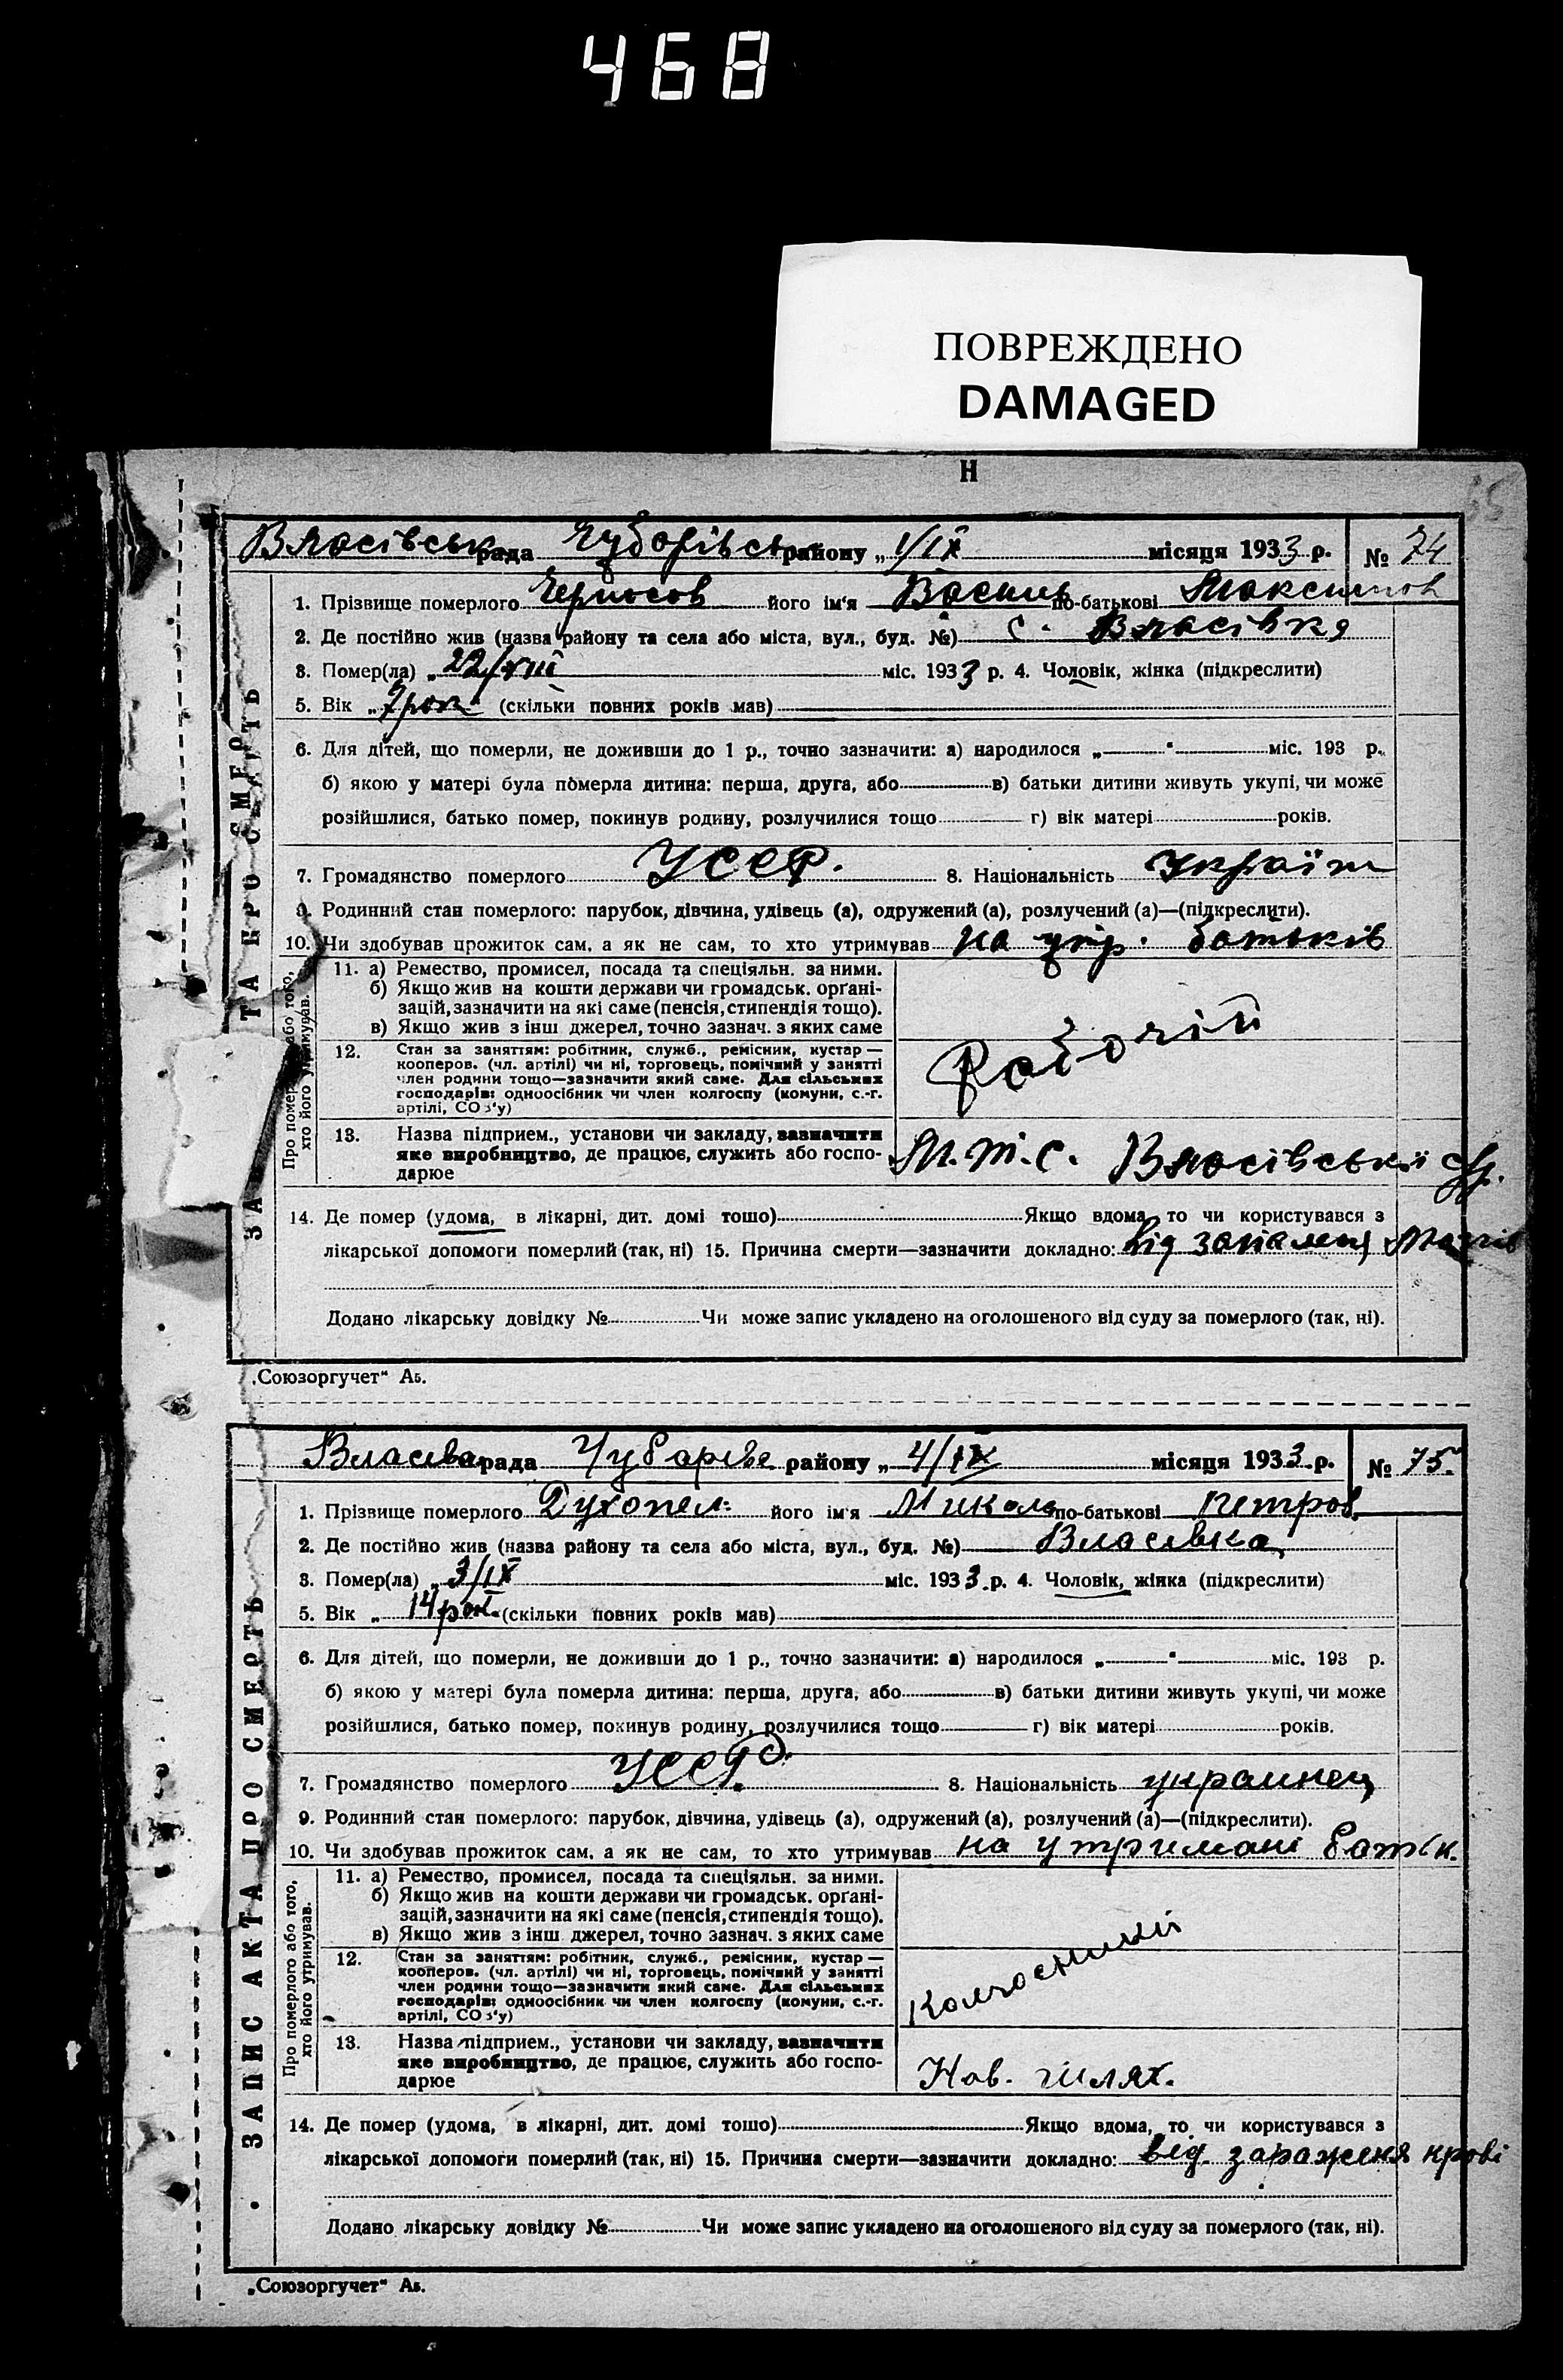 468
ПОВРЕЖДЕНО
DAMAGED
Н
65
Власівськ рада Чубарівськ району „ 1/IX місяця 1933 р. № 74
1. Прізвище померлого його ім'я Василь по-батькові Максимов
2. Де постійно жив (назва району та села або міста, вул., буд. №) с. Власівка
3. Помер(ла) „ 22/VIII міс. 1933 р. 4. Чоловік, жінка (підкреслити)
5. Вік „ 7 рок " (скільки повних років мав)
6. Для дітей, що померли, не доживши до 1 р., точно зазначити: а) народилося „ " міс. 193 р.
б) якою у матері була померла дитина: перша, друга, або в) батьки дитини живуть укупі, чи може
розійшлися, батько помер, покинув родину, розлучилися тощо г) вік матері років.
7. Громадянство померлого УССР. 8. Національність Україн
9. Родинний стан померлого: парубок, дівчина, удівець (а), одружений (а), розлучений (а)—(підкреслити).
10. Чи здобував прожиток сам, а як не сам, то хто утримував на утр. батьків
11. а) Ремество, промисел, посада та спеціяльн. за ними.
б) Якщо жив на кошти держави чи громадськ. орґані-
зацій, зазначити на які саме (пенсія, стипендія тощо).
в) Якщо жив з інш джерел, точно зазнач. з яких саме
12. Стан за заняттям: робітник, служб., ремісник, кустар—
кооперов. (чл. артілі) чи ні, торговець, помічний у занятті
член родини тощо—зазначити який саме. Для сільських
господарів: одноосібник чи член колгоспу (комуни, с.-г.
артілі, СОЗ'у)
Робочій
13. Назва підприєм., установи чи закладу, зазначити
яке виробництво, де працює, служить або госпо-
дарює
М.Т.С. Власівській
14. Де помер (удома, в лікарні, дит. домі тощо) Якщо вдома, то чи користувався з
лікарської допомоги померлий (так, ні) 15. Причина смерти—зазначити докладно: від запаленя
Додано лікарську довідку № Чи може запис укладено на оголошеного від суду за померлого (так, ні).
„Союзоргучет" Аб.
Про померлого або того,
хто його утримував.
Власівка рада Чубарівк району „ 4/IX місяця 1933 р. № 75.
1. Прізвище померлого Духопел. його ім'я Микола по-батькові Петров.
2. Де постійно жив (назва району та села або міста, вул., буд. №) Власівка
3. Помер(ла) „ 3/IX міс. 1933. р. 4. Чоловік, жінка (підкреслити)
5. Вік „ 14 рок. (скільки повних років мав)
6. Для дітей, що померли, не доживши до 1 р., точно зазначити: а) народилося „ " міс. 193 р.
б) якою у матері була померла дитина: перша, друга, або в) батьки дитини живуть укупі, чи може
розійшлися, батько помер, покинув родину, розлучилися тощо г) вік матері років.
7. Громадянство померлого УССР. 8. Національність украинец
9. Родинний стан померлого: парубок, дівчина, удівець (а), одружений (а), розлучений (а)—(підкреслити).
10. Чи здобував прожиток сам, а як не сам, то хто утримував на утримані батьк.
11. а) Ремество, промисел, посада та спеціяльн. за ними.
б) Якщо жив на кошти держави чи громадськ. орґані-
зацій, зазначити на які саме (пенсія, стипендія тощо).
в) Якщо жив з інш джерел, точно зазнач. з яких саме
12. Стан за заняттям: робітник, служб., ремісник, кустар—
кооперов. (чл. артілі) чи ні, торговець, помічний у занятті
член родини тощо—зазначити який саме. Для сільських
господарів: одноосібник чи член колгоспу (комуни, с.-г.
артілі, СОЗ'у)
13. Назва підприєм., установи чи закладу, зазначити
яке виробництво, де працює, служить або госпо-
дарює
Нов. шлях.
14. Де помер (удома, в лікарні, дит. домі тощо) Якщо вдома, то чи користувався з
лікарської допомоги померлий (так, ні) 15. Причина смерти—зазначити докладно: від зараженя крові
Додано лікарську довідку № Чи може запис укладено на оголошеного від суду за померлого (так, ні).
„Союзоргучет" Аб.
ЗАПИС АКТА ПРО СМЕРТЬ
Про померлого або того,
хто його утримував.